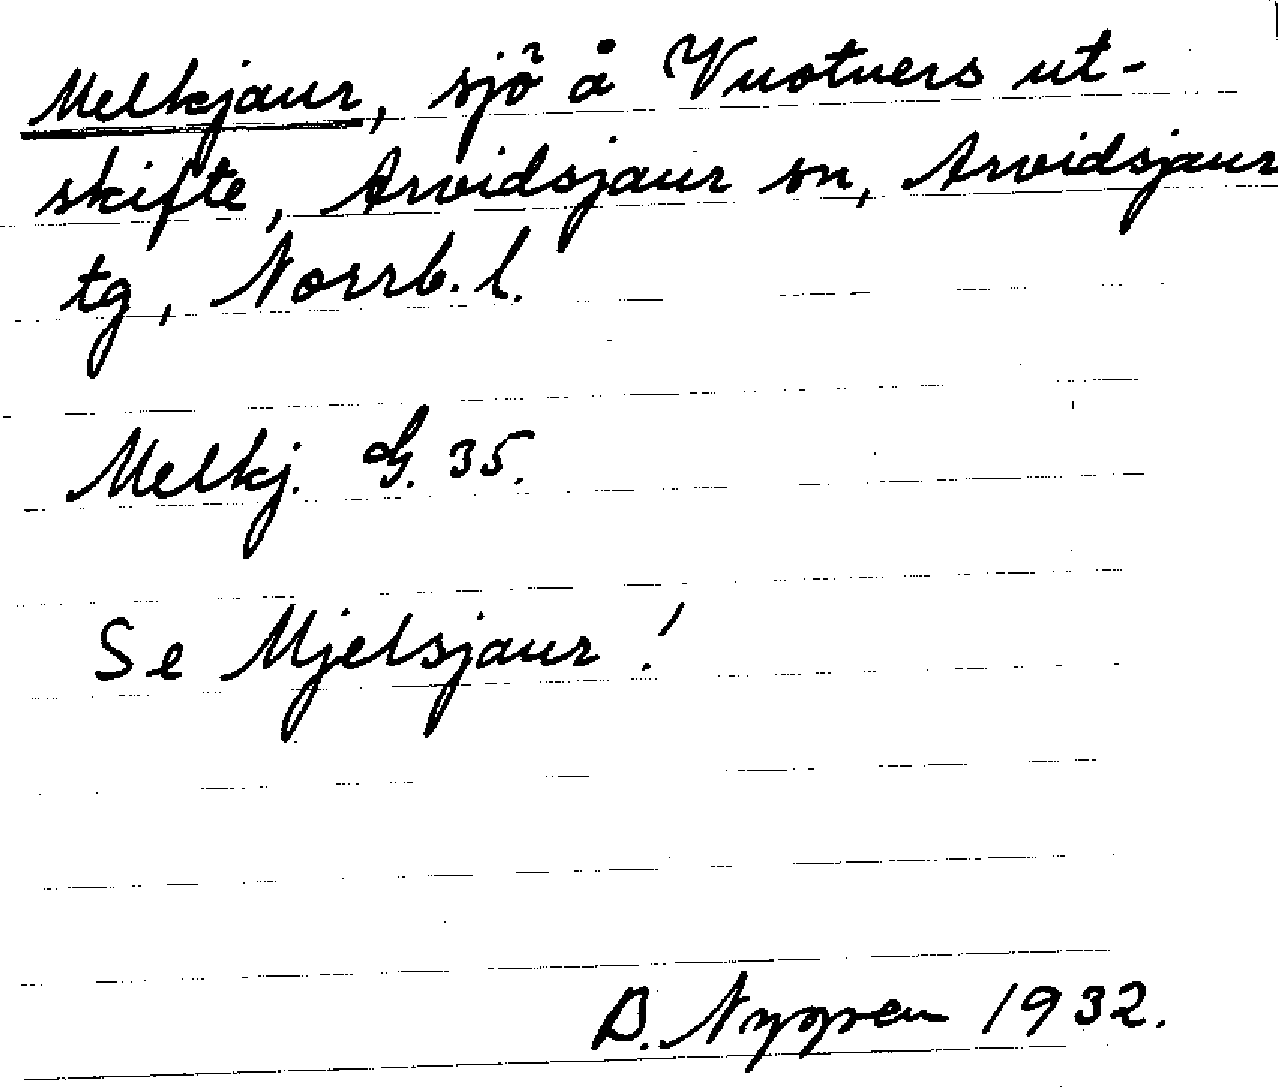 Melkjaur, sjö å Vuotners ut-
skifte, Arvidsjaur sn, Arvidsjaur
tg, Norrb. l.
Melkj. G. 35.
Se Mjelsjaur!
B. Nygren 1932.